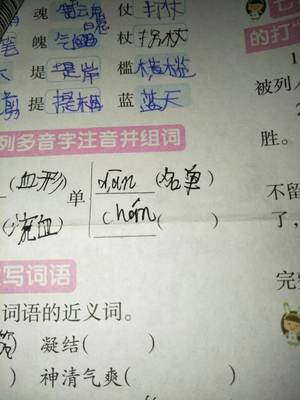 魂 仗 打仗
魄 气魄 杖
堤 堤岸 槛
剪 提 蓝 蓝天
七
的打
被列
列多音字注音并组词
胜。
(血形) 单 dān (名单)
(流血) chán ( )
不留
写词语
词语的近义词。
完
凝结( )
) 神清气爽( )